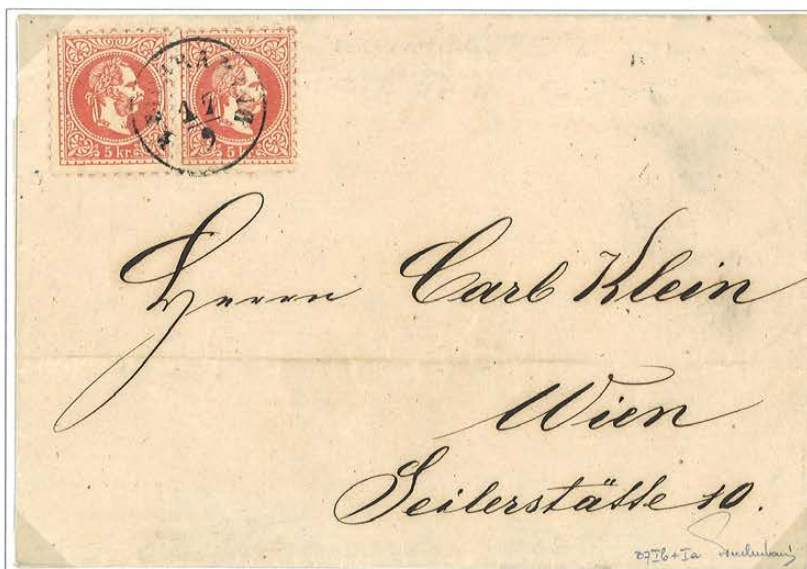 5 kr. 5 kr.
17
9
Herrn Carl Klein
Wien
Seilerstätte 10.
Ib + Ia